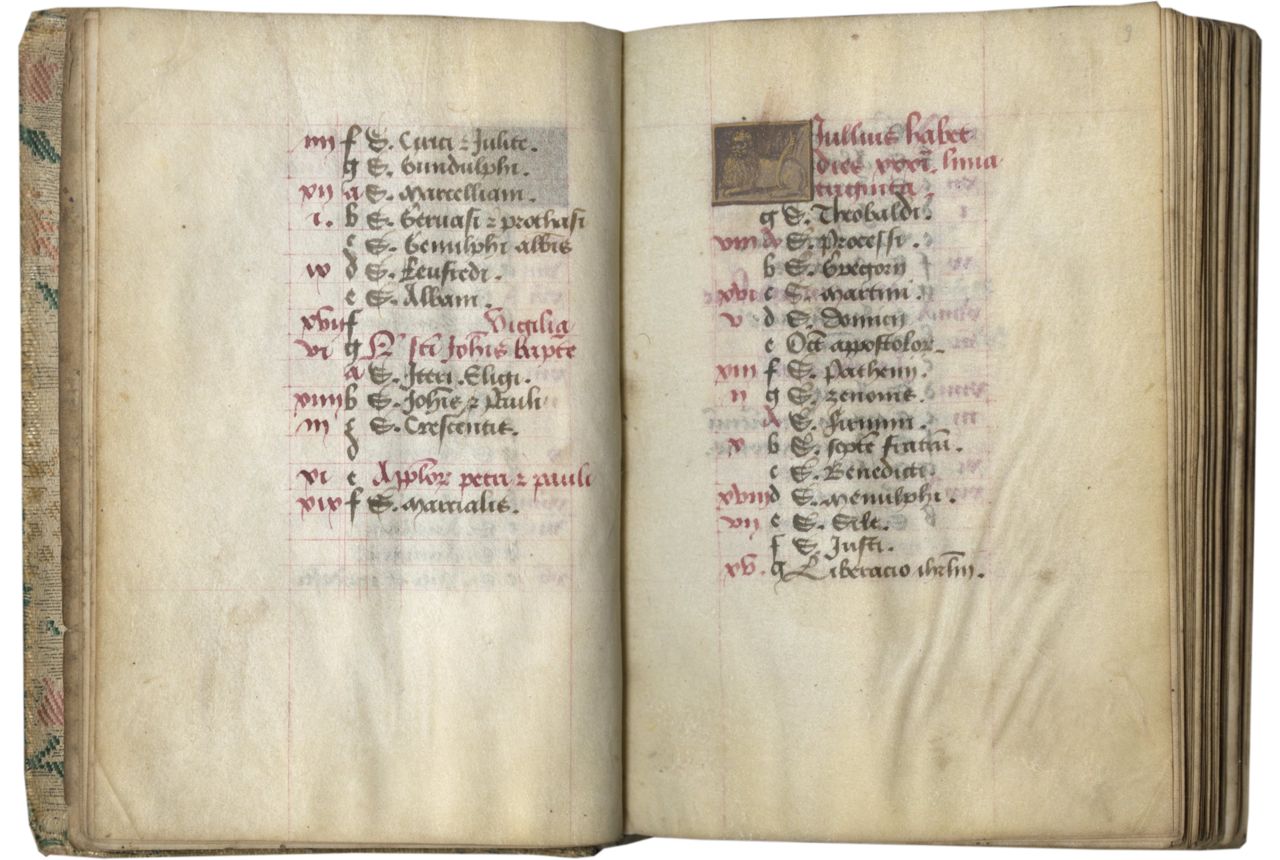 iiii f S. Cirici ⁊ Julite.
g S. Gundulphi.
xii a S. Marcelliani.
i. b S. Gervasi ⁊ prothasi
c S. Genulphi albis
ix d S. Leufredi.
e S. Albani.
xvii f Vigilia
vi g N. sci Johis bapte
a S. Itteri. Eligi.
xiiii b S. Johis ⁊ Pauli
iii c S. Crescentis.
d
xi e Applor petri ⁊ pauli
xix f S. Marcialis.
9
Jullius habet
dies xxxi. luna
triginta.
g S. Theobaldi.
viii A S. Processi.
b S. Gregorii
xvi c S. Martini.
v d S. Domicii
e Oct appostolor.
xiii f S. Pathenii.
ii g S. zenonis.
A S. Firmini.
x b S. septe fratru.
c S. Benedicti.
xviii d S. Menulphi.
vii e S. Sile.
f S. Justi.
xv. g Liberacio ihrlm.